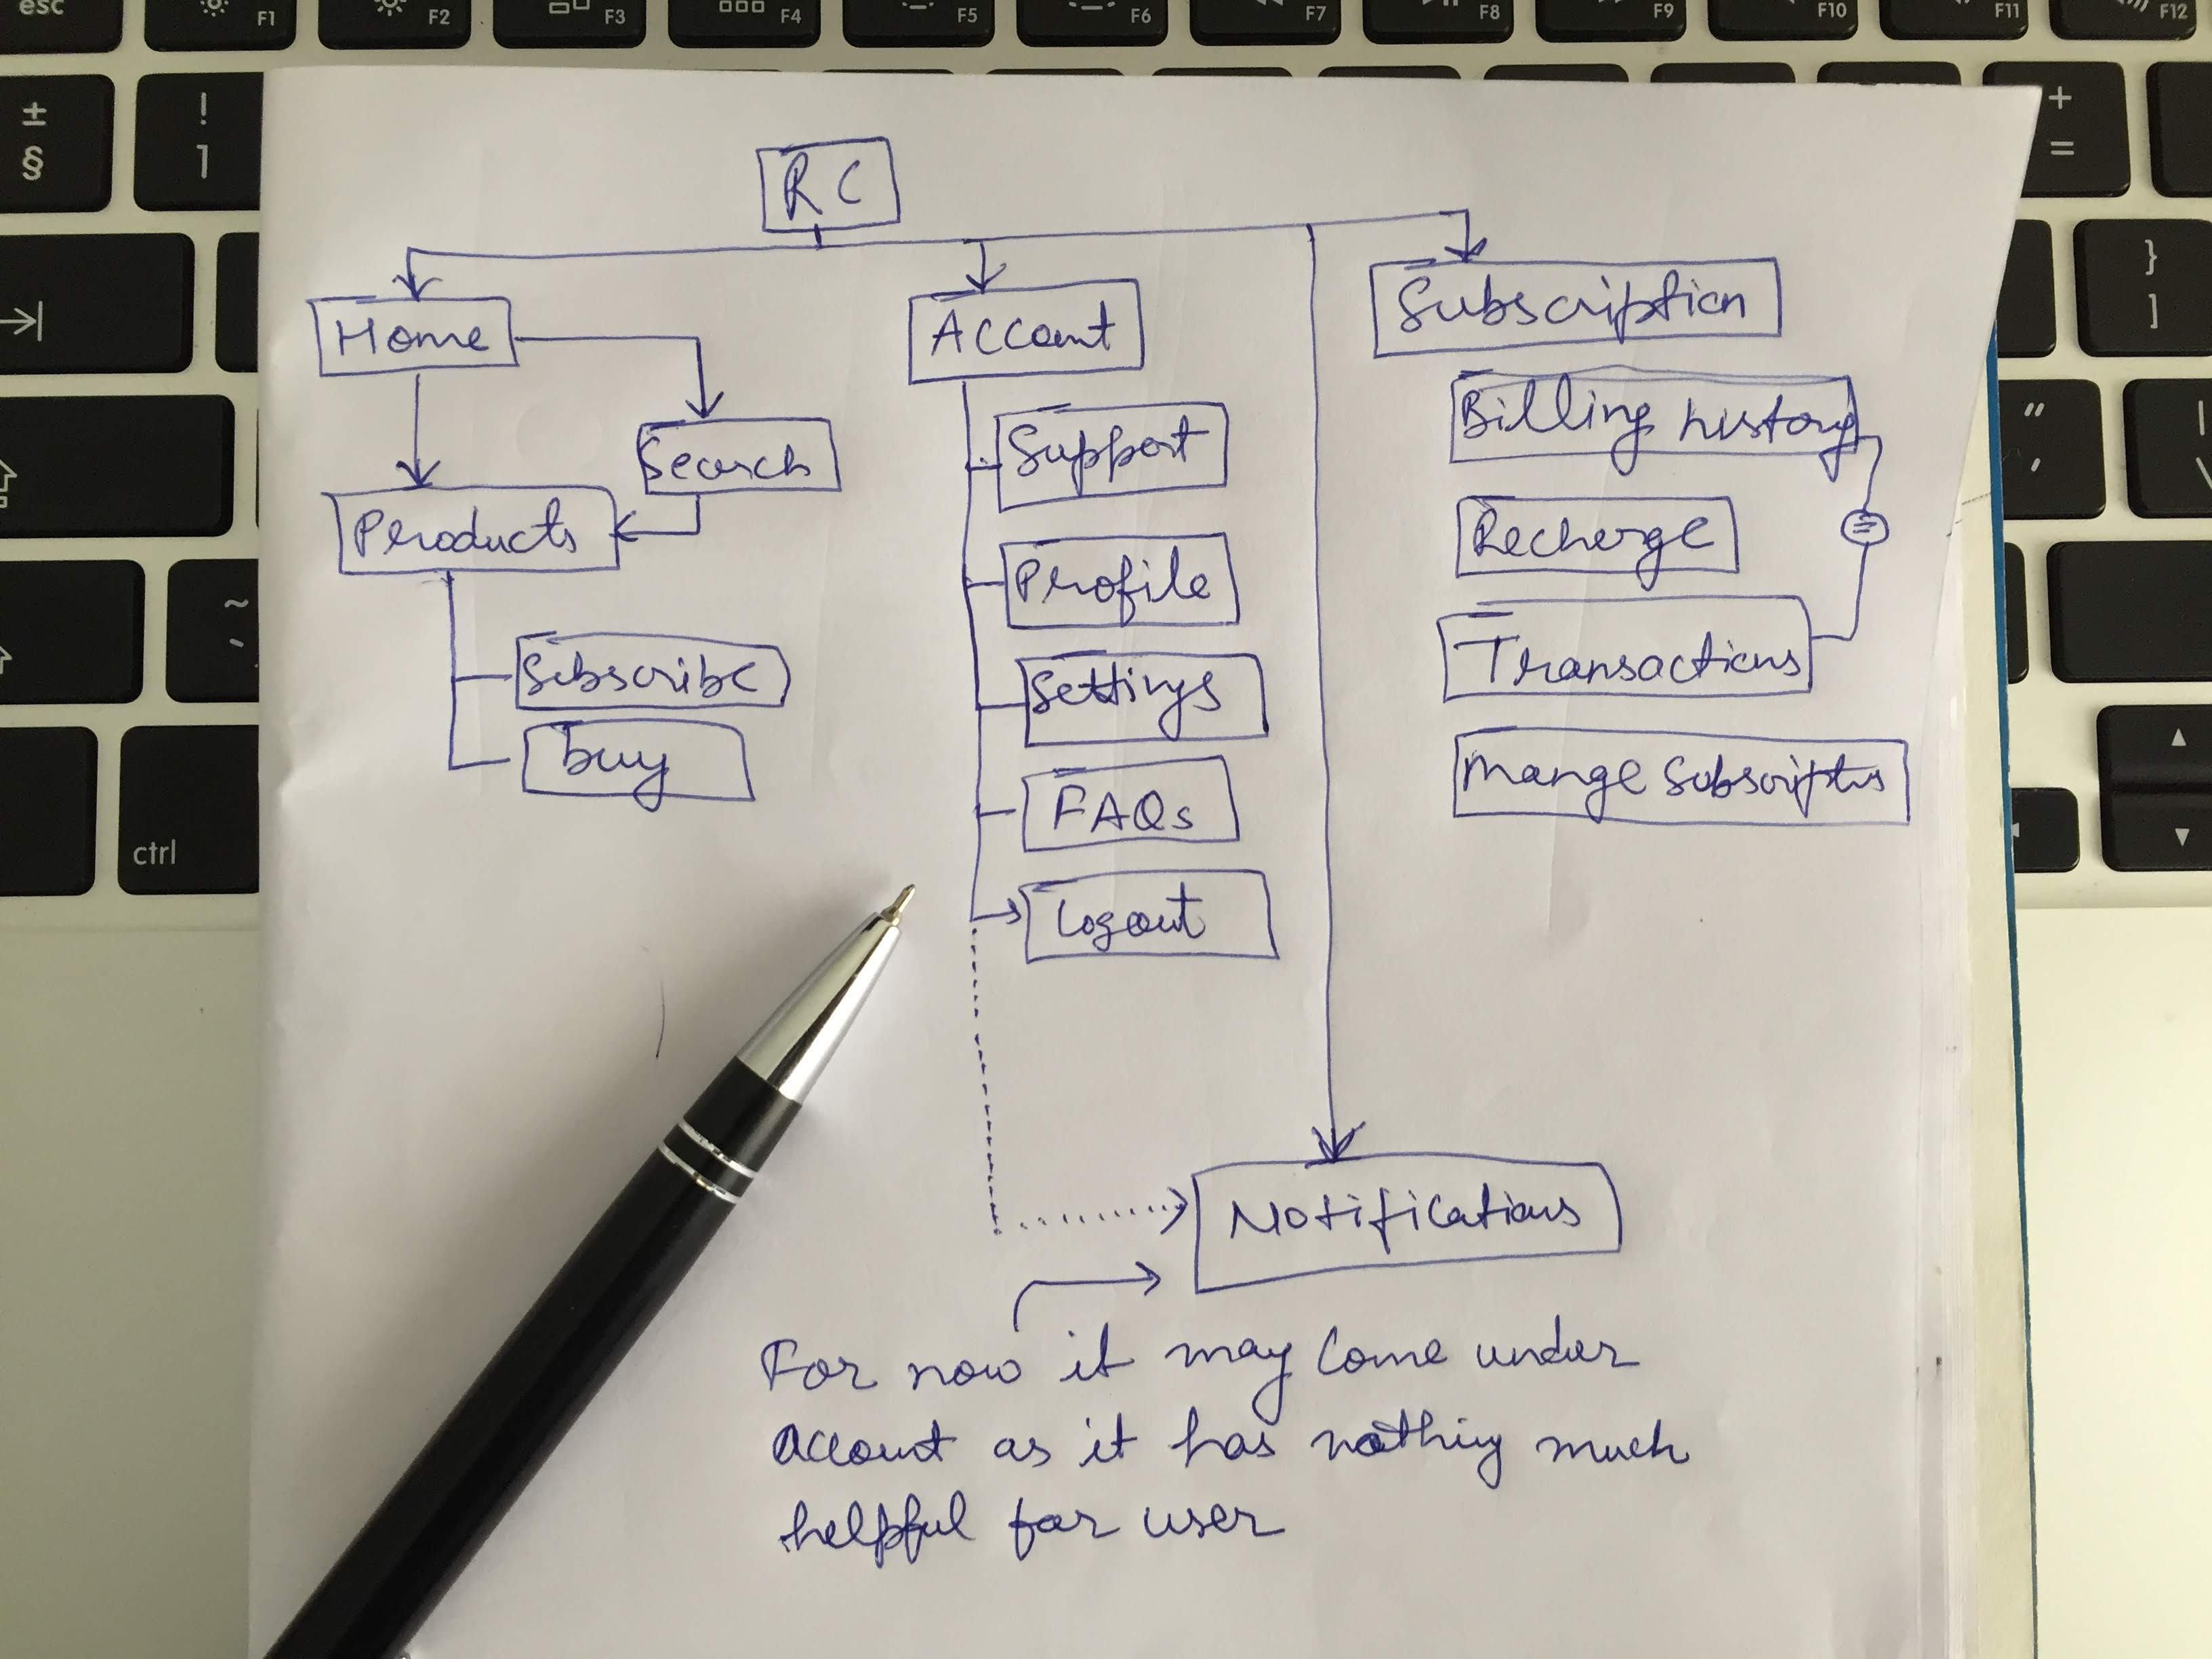 esc
F1
F2
F3
F4
F5
F6
F7
F8
F9
F10
F11
F12
±
§
!
1
+
=
}
]
"
'
|
\
~
ctrl
RC
Home
Account
Subscription
Search
Products
Subscribe
buy
Support
Profile
Settings
FAQs
Logout
Billing history
Recharge
=
Transactions
Mange Subscriptns
Notifications
For now it may come under
account as it has nothing much
helpful for user